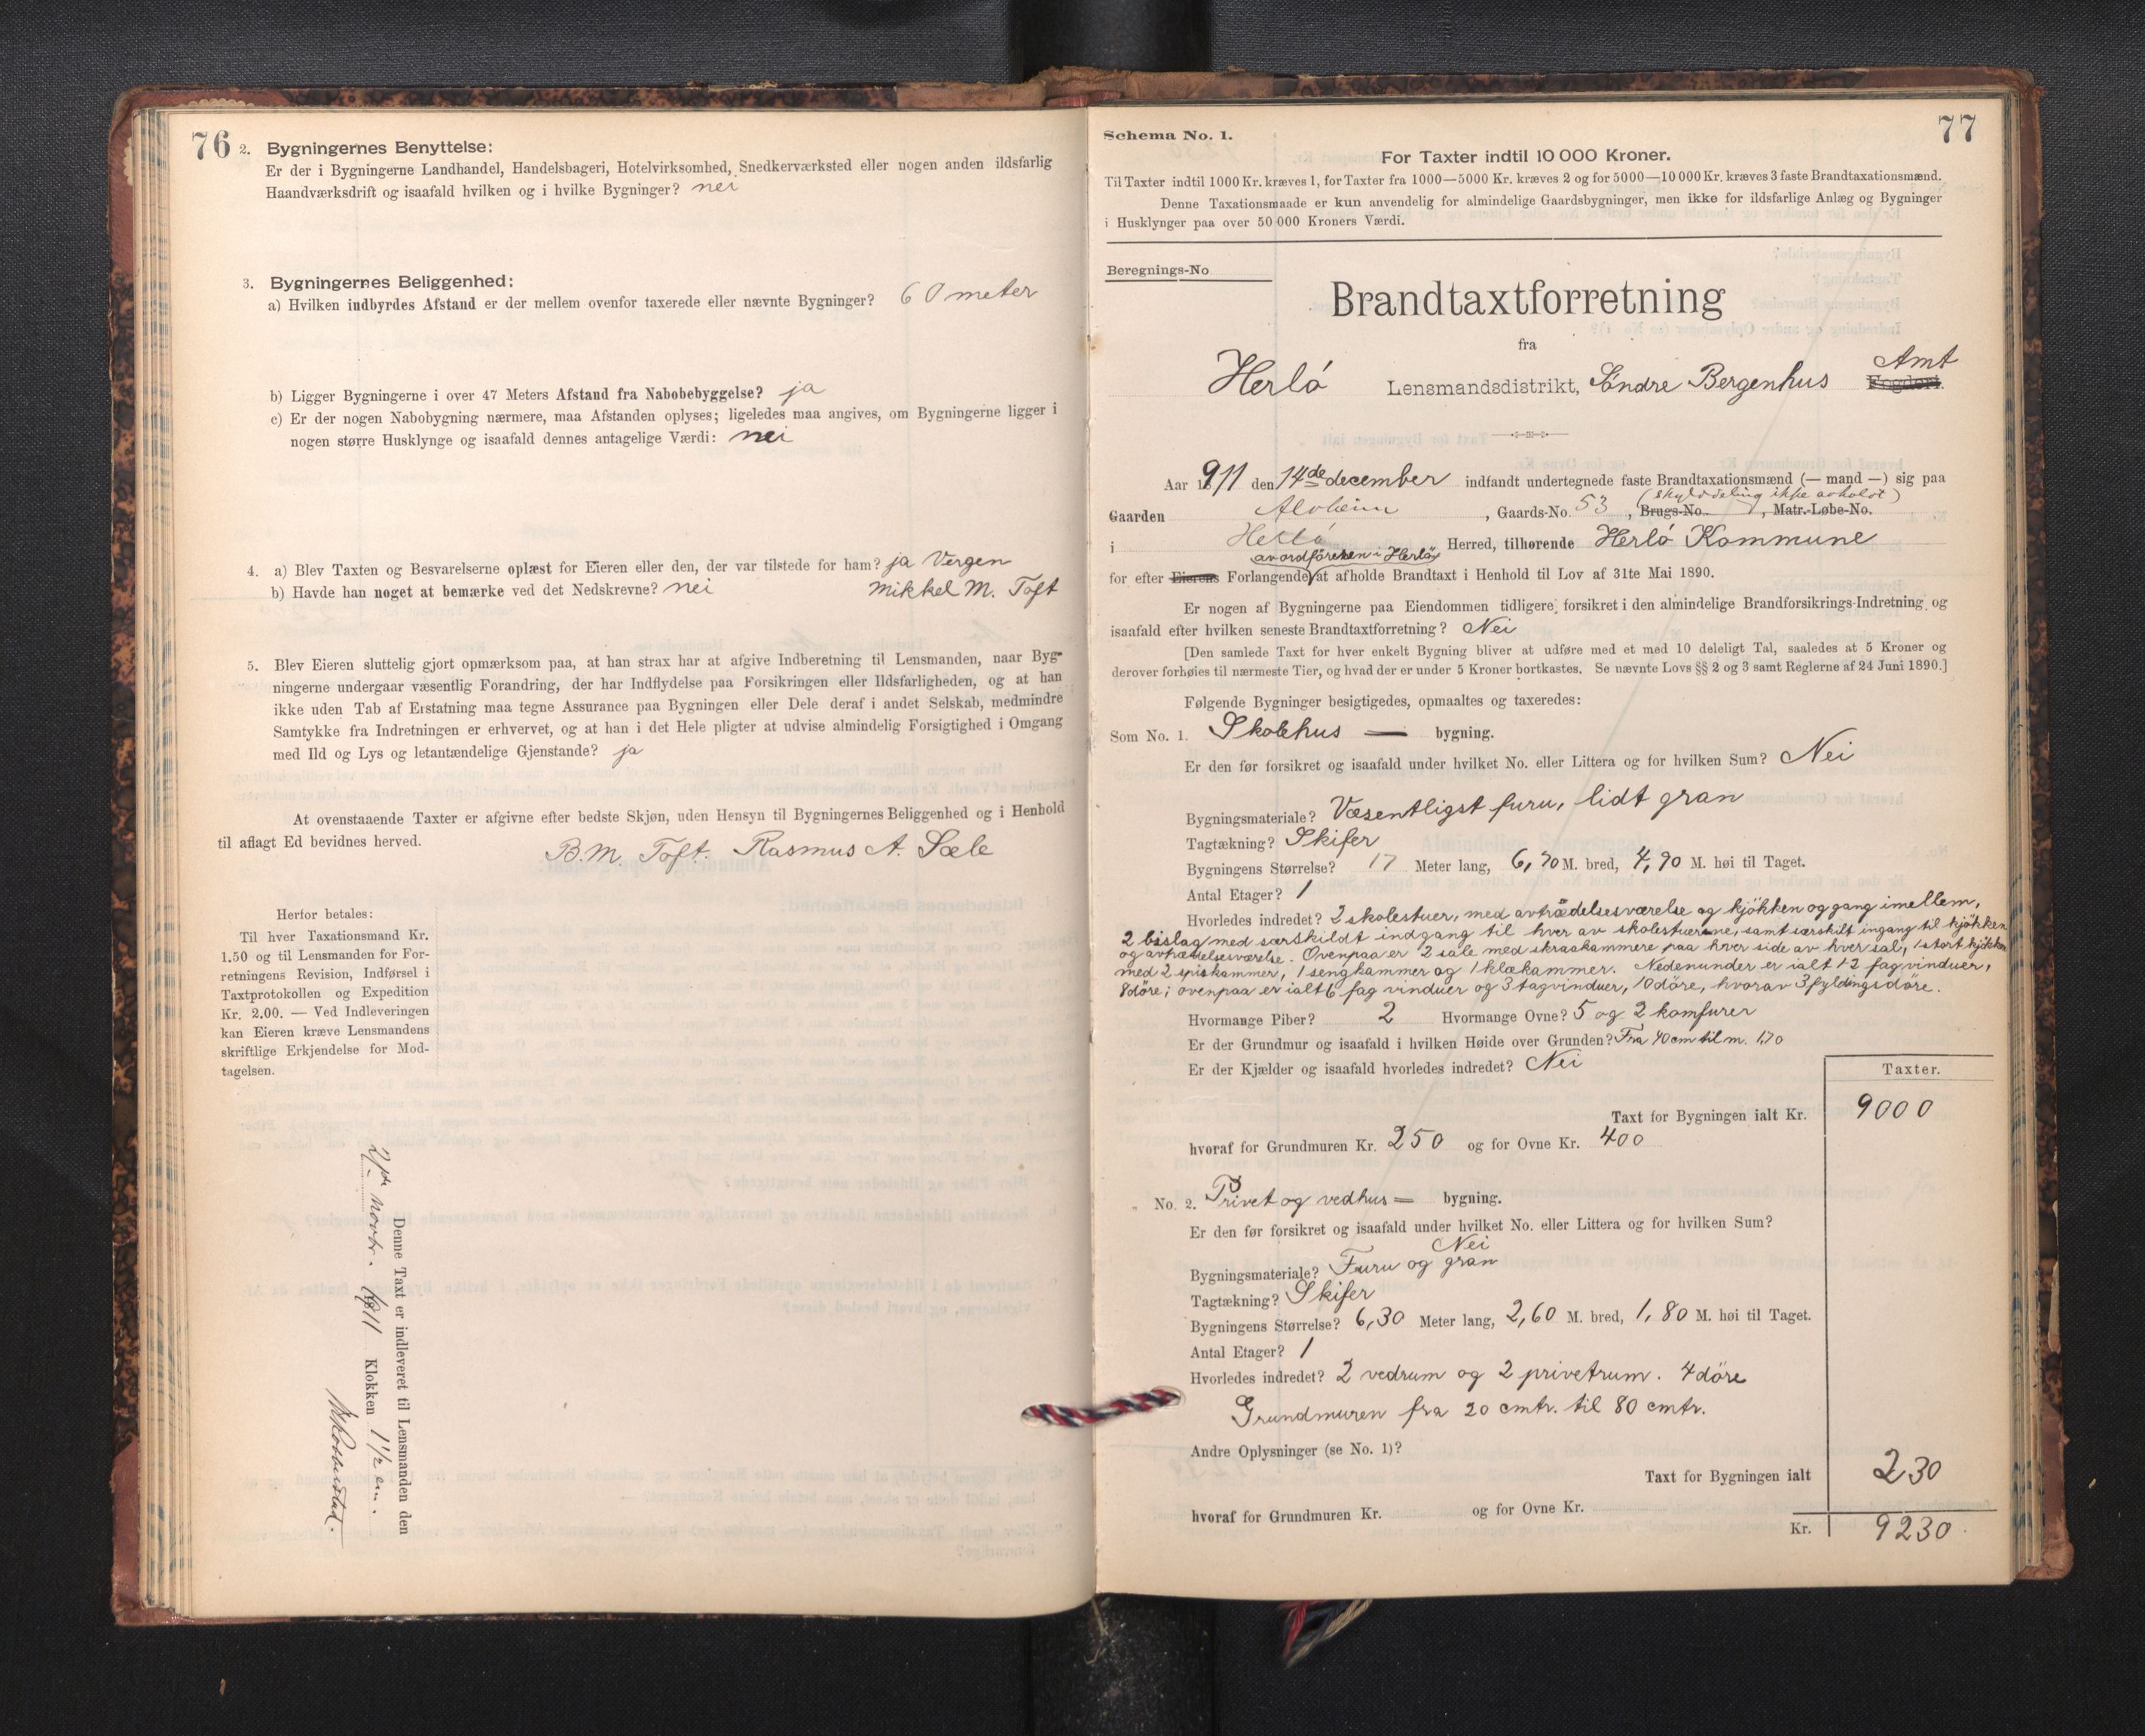 76
2. Bygningernes Benyttelse:
Er der i Bygningerne Landhandel, Handelsbageri, Hotelvirksomhed, Snedkerværksted eller nogen anden ildsfarlig
Haandværksdrift og isaafald hvilken og i hvilke Bygninger? nei
3. Bygningernes Beliggenhed:
a) Hvilken indbyrdes Afstand er der mellem ovenfor taxerede eller nævnte Bygninger? 60 meter
b) Ligger Bygningerne i over 47 Meters Afstand fra Nabobebyggelse? ja
c) Er der nogen Nabobygning nærmere, maa Afstanden oplyses; ligeledes maa angives, om Bygningerne ligger i
nogen større Husklynge og isaafald dennes antagelige Værdi: nei
4. a) Blev Taxten og Besvarelserne oplæst for Eieren eller den, der var tilstede for ham? ja Vergen
b) Havde han noget at bemærke ved det Nedskrevne? nei Mikkel M. Toft
5. Blev Eieren sluttelig gjort opmærksom paa, at han strax har at afgive Indberetning til Lensmanden, naar Byg-
ningerne undergaar væsentlig Forandring, der har Indflydelse paa Forsikringen eller Ildsfarligheden, og at han
ikke uden Tab af Erstatning maa tegne Assurance paa Bygningen eller Dele deraf i andet Selskab, medmindre
Samtykke fra Indretningen er erhvervet, og at han i det Hele pligter at udvise almindelig Forsigtighed i Omgang
med Ild og Lys og letantændelige Gjenstande? ja
At ovenstaaende Taxter er afgivne efter bedste Skjøn, uden Hensyn til Bygningernes Beliggenhed og i Henhold
til aflagt Ed bevidnes herved.
B.M. Toft. Rasmus A. Sæle
Herfor betales:
Til hver Taxationsmand Kr.
1.50 og til Lensmanden for For-
retningens Revision, Indførsel i
Taxtprotokollen og Expedition
Kr. 2.00. — Ved Indleveringen
kan Eieren kræve Lensmandens
skriftlige Erkjendelse for Mod-
tagelsen.
Denne Taxt er indleveret til Lensmanden den
novbr. 1911 Klokken 1 1/2 em.
77
Schema No. 1.
For Taxter indtil 10 000 Kroner.
Til Taxter indtil 1000 Kr. kræves 1, for Taxter fra 1000—5000 Kr. kræves 2 og for 5000—10 000 Kr. kræves 3 faste Brandtaxationsmænd.
Denne Taxationsmaade er kun anvendelig for almindelige Gaardsbygninger, men ikke for ildsfarlige Anlæg og Bygninger
i Husklynger paa over 50 000 Kroners Værdi.
Beregnings-No
Brandtaxtforretning
fra
Amt
Herlö Lensmandsdistrikt, Söndre Bergenhus Fogderi.
Aar 1911 den 14de december indfandt undertegnede faste Brandtaxationsmænd (— mand —) sig paa
(skylddeling ikke avholdt)
Gaarden Alvheim, Gaards-No. 53, Brugs-No. , Matr.-Løbe-No.
i Herlö Herred, tilhørende Herlö Kommune
av ordföreren i Herlö
for efter Eierens Forlangende at afholde Brandtaxt i Henhold til Lov af 31te Mai 1890.
Er nogen af Bygningerne paa Eiendommen tidligere forsikret i den almindelige Brandforsikrings-Indretning og
isaafald efter hvilken seneste Brandtaxtforretning? Nei
[Den samlede Taxt for hver enkelt Bygning bliver at udføre med et med 10 deleligt Tal, saaledes at 5 Kroner og
derover forhøies til nærmeste Tier, og hvad der er under 5 Kroner bortkastes. Se nævnte Lovs §§ 2 og 3 samt Reglerne af 24 Juni 1890.]
Følgende Bygninger besigtigedes, opmaaltes og taxeredes:
Som No. 1. Skolehus — bygning.
Er den før forsikret og isaafald under hvilket No. eller Littera og for hvilken Sum? Nei
Bygningsmateriale? Væsentligst furu, lidt gran
Tagtækning? Skifer
Bygningens Størrelse? 17 Meter lang, 6,70 M. bred, 4,90 M. høi til Taget.
Antal Etager? 1
Hvorledes indredet? 2 skolestuer, med avtrædelsesværelse og kjökken og gang imellem,
2 bislag med særskildt indgang til hver av skolestuerne, samt særskilt ingang til kjökken
og avtrædelsesværelse. Ovenpaa er 2 sale med skraakammere paa hver side av hver sal, 1 stort kjökken
med 2 spiskammer, 1 sengkammer og 1 klækammer. Nedenunder er ialt 12 fag vinduer,
8 döre; ovenpaa er ialt 6 fag vinduer og 3 tagvinduer, 10 döre, hvorav 3 fyldingsdöre.
Hvormange Piber? 2 Hvormange Ovne? 5 og 2 komfurer
Er der Grundmur og isaafald i hvilken Høide over Grunden? Fra 40 cm til m. 1,70
Er der Kjælder og isaafald hvorledes indredet? Nei
Taxter.
Taxt for Bygningen ialt Kr. 9000
hvoraf for Grundmuren Kr. 250 og for Ovne Kr. 400
No. 2. Privet og vedhus — bygning.
Er den før forsikret og isaafald under hvilket No. eller Littera og for hvilken Sum?
Nei
Bygningsmateriale? Furu og gran
Tagtækning? Skifer
Bygningens Størrelse? 6,30 Meter lang, 2,60 M. bred, 1,80 M. høi til Taget.
Antal Etager? 1
Hvorledes indredet? 2 vedrum og 2 privetrum. 4 döre
Grundmuren fra 20 cmtr. til 80 cmtr.
Andre Oplysninger (se No. 1)?
Taxt for Bygningen ialt 230
hvoraf for Grundmuren Kr. og for Ovne Kr.
Kr. 9230